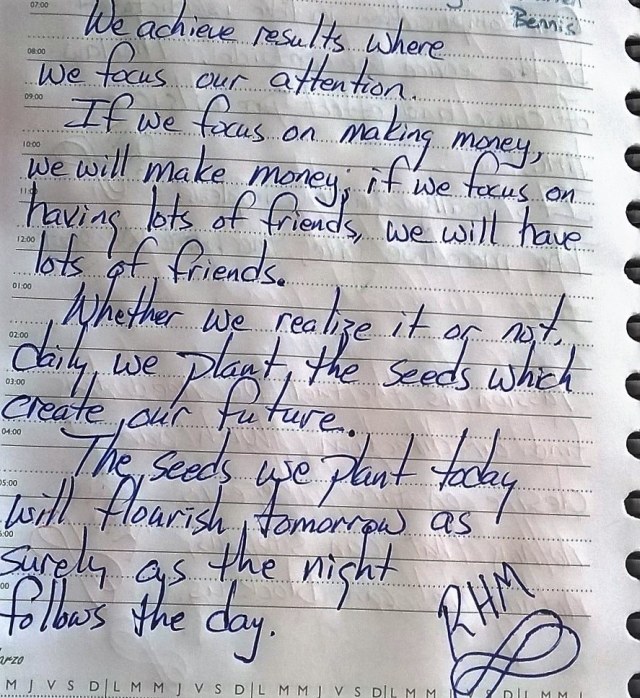 07:00
Bennis
We achieve results where
08:00
we focus our attention.
09:00
If we focus on making money,
10:00
we will make money; if we focus on
having lots of friends, we will have
12:00
lots of friends.
01:00
Whether we realize it or not,
02:00
daily, we plant, the seeds which
03:00
create our future.
04:00
The seeds we plant today
05:00
will flourish tomorrow as
surely as the night
follows the day.
RHM
M J V S D L M M J V S D L M M J V S D L M M